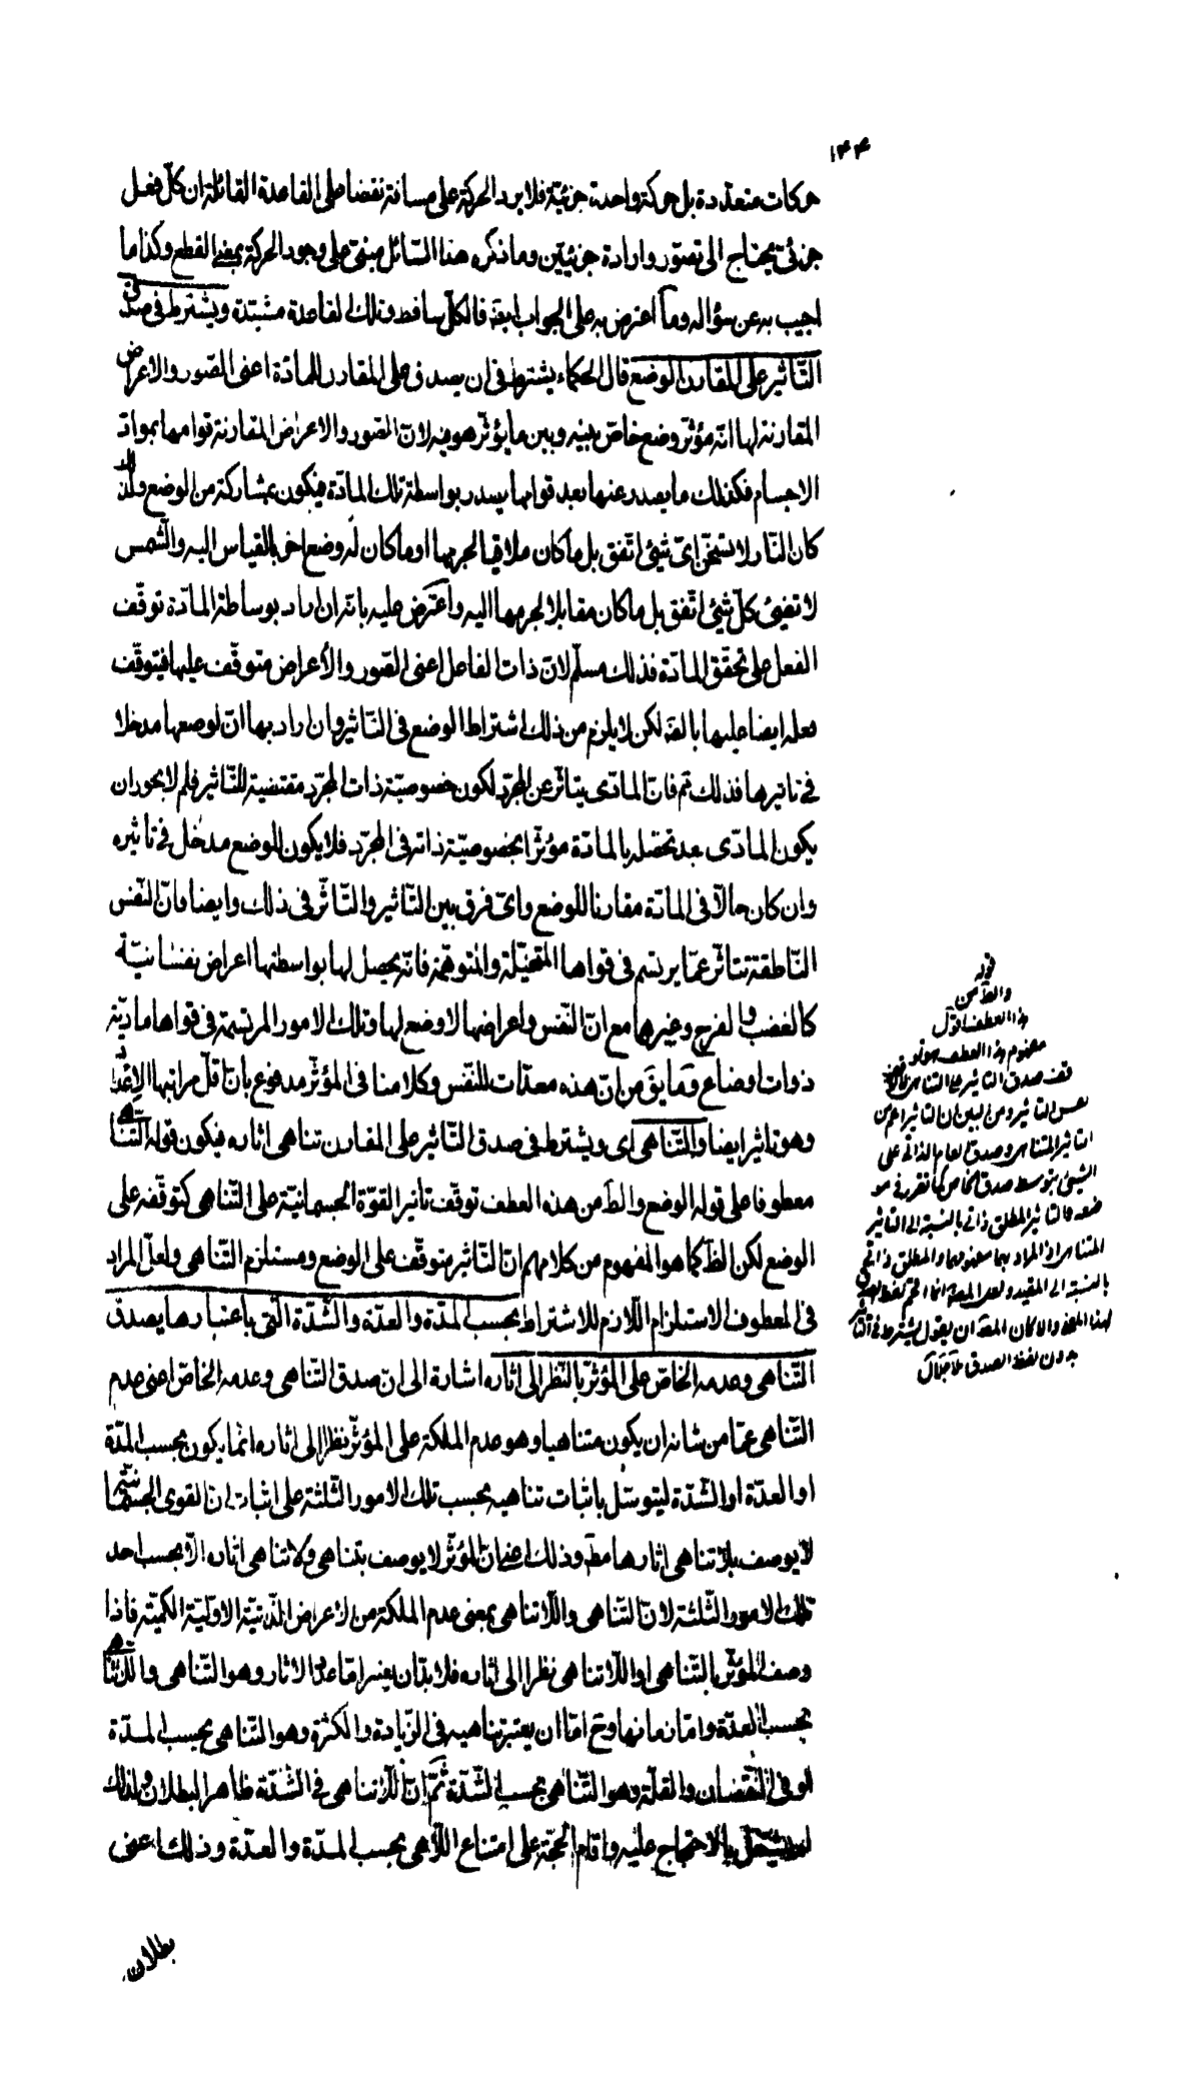 ١٤٤
حركات متعدّدة بل حركة واحدة جزئيّة فلا يرد الحركة على مسافة نقضا على القاعدة القائلة ان كلّ فعل
جزئى يحتاج الى تصوّر وارادة جزئيّين وما ذكره هذا السّائل مبنى على وجود الحركة بمعنى القطع وكذا ما
اجيب به عن سؤاله وما اعترض به على الجواب ايضا فالكلّ ساقط وتلك القاعدة مشيدة ويشترط فى صدق
التّاثير على المقارن الوضع قال الحكماء يشترط فى ان يصدق على المقارن للمادّة اعنى الصّور والاعراض
المقارنة لها انّه مؤثّر وضع خاصّ بينه وبين ما يؤثّر هو فيه لانّ الصّور والاعراض المقارنة قوامها بموادّ
الاجسام فكذلك ما يصدر عنها بعد قوامها يصدر بواسطة تلك المادّة فيكون بمشاركة من الوضع ولذلك
كان النّار لا تسخّن اىّ شيئ اتّفق بل ما كان ملاقيا لجرمها او ما كان له وضع اخر بالقياس اليه والشّمس
لا تضيئ كلّ شيئ اتّفق بل ما كان مقابلا لجرمها اليه واعترض عليه بانّه ان اراد بوساطة المادّة توقّف
الفعل على تحقّق المادّة فذلك مسلّم لانّ ذات الفاعل اعنى الصّور والأعراض متوقّف عليها فيتوقّف
فعله ايضا عليها بالضّ لكن لا يلزم من ذلك اشتراط الوضع فى التّاثير وان اراد بها انّ لوضعها مدخلا
فى تاثيرها فذلك ثم فانّ المادّى يتاثّر عن المجرّد لكون خصوصيّة ذات المجرّد مقتضية للتّاثير فلم لا يجوز ان
يكون المادّى بعد تحصّله بالمادّة مؤثّرا بخصوصيّة ذاته فى المجرّد فلا يكون للوضع مدخل فى تاثيره
وان كان حالّا فى المادّة مقارنا للوضع واىّ فرق بين التّاثير والتّاثّر فى ذلك وايضا فانّ النّفس
النّاطقة تتاثّر عمّا يرتسم فى قواها المتخيّلة والمتوهّمة فانّه يحصل لها بواسطتها اعراض نفسانيّة
كالغضب والفرح وغيرها مع انّ النّفس واعراضها لا وضع لها وتلك الامور المرتسمة فى قواها ماديّة
ذوات اوضاع وما يقَ من انّ هذه معدّات للنّفس وكلامنا فى المؤثّر مدفوع بانّ اقلّ مراتبها الاعداد
وهو تاثير ايضا والتّناهى اى ويشترط فى صدق التّاثير على المقارن تناهى اثاره فيكون قوله التّناهى
معطوفا على قوله الوضع والظَ من هذه العطف توقّف تاثير القوّة الجسمانيّة على التّناهى كتوقّفه على
الوضع لكن الظَ كما هو المفهوم من كلامهم انّ التّاثير متوقّف على الوضع ومستلزم التّناهى ولعلّ المراد
فى المعطوف الاستلزام اللّازم للاشتراط بحسب المدّة والعدّة والشّدّة الّتى باعتبارها يصدق
التّناهى وعدمه الخاصّ على المؤثّر بالنّظر الى اثاره اشارة الى ان صدق التّناهى وعدمه الخاصّ اعنى عدم
التّناهى عمّا من شانه ان يكون متناهيا وهو عدم الملكة على المؤثّر نظرا الى اثاره انّما يكون بحسب المدّة
او العدّة او الشّدّة ليتوسّل باثبات تناهيه بحسب تلك الامور الثّلثة على اثبات انّ القوى الجسمانيّة
لا يوصف بلا تناهى اثارها مطَ وذلك اعنى انّ المؤثّر لا يوصف بتناهى ولا تناهى اثاره الّا بحسب احد
تلك الامور الثّلثة لانّ التّناهى واللّاتناهى بمعنى عدم الملكة من الاعراض الذّاتيّة الاوّليّة الكميّة فاذا
وصف المؤثّر بالتّناهى او اللّاتناهى نظرا الى اثاره فلا بدّ ان يعتبر امّا عدد الاثار وهو التّناهى واللّاتناهى
بحسب العدّة وامّا زمانها وح امّا ان يعتبر تناهيه فى الزّيادة والكثرة وهو التّناهى بحسب المدّة
او فى النّقصان والقلّة وهو التّناهى بحسب الشّدّة ثمّ انّ اللّاتناهى فى الشّدّة ظاهر البطلان ولذلك
لم يشتغل بالاحتجاج عليه واقام الحجّة على امتناع اللّاهى بحسب المدّة والعدّة وذلك اعنى
بطلان
قوله
والظَ من
هذا العطف اقول
مفهوم هذا العطف هو تو
قف صدق التاثير على التناهى لا
نفس التاثير ومن البين ان التاثير اعم من
التاثير المتناهى وصدق العام الذاتى على
الشيئ بتوسط صدق الخاص كما تقرر فى مو
ضعه فالتاثير المطلق ذاتى بالنسبة الى التاثير
المتناهى اذ المراد بهما مفهومهما والمطلق ذاتى
بالنسبة الى المقيد ولعل المصَ انما اقحم لفظ الصدق
لهذا المعنى والا كان المصَ ان يقول يشترط فى التاثير
بدون لفظ الصدق